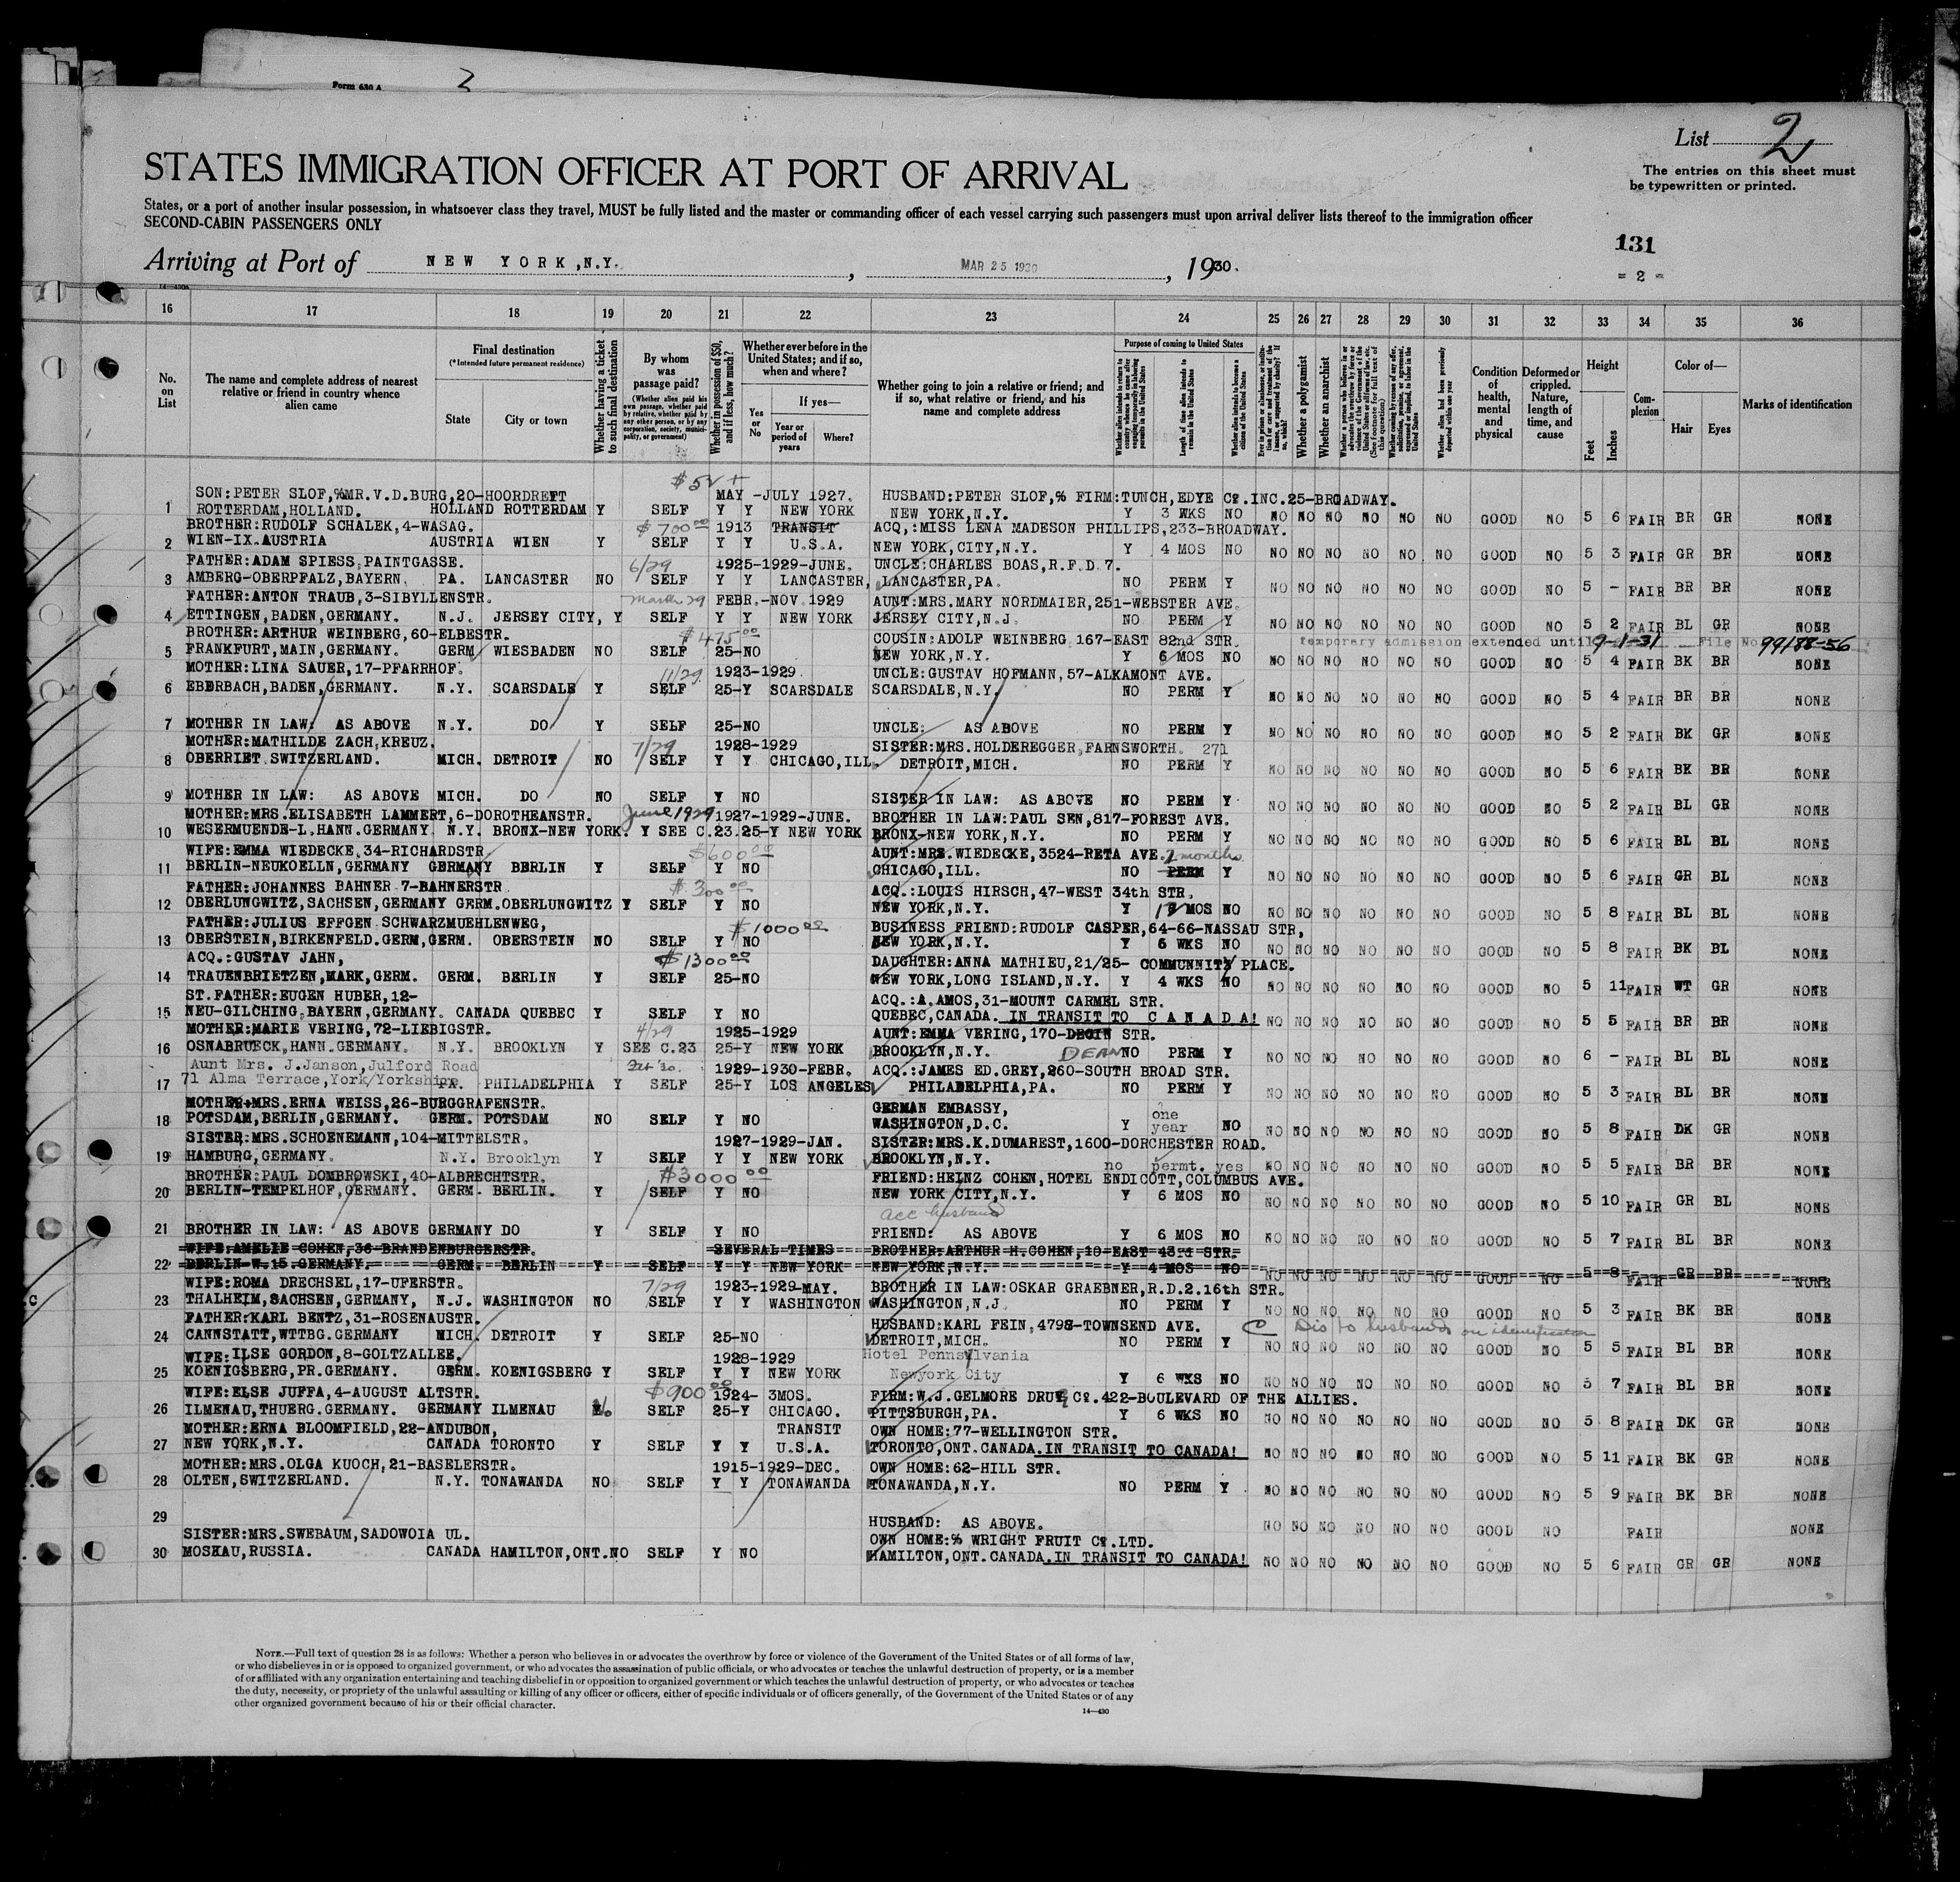 Form 630 A
2
List 2
The entries on this sheet must
be typewritten or printed.
STATES IMMIGRATION OFFICER AT PORT OF ARRIVAL
States, or a port of another insular possession, in whatsoever class they travel, MUST be fully listed and the master or commanding officer of each vessel carrying such passengers must upon arrival deliver lists thereof to the immigration officer
SECOND-CABIN PASSENGERS ONLY
131
= 2 =
Arriving at Port of NEW YORK, N.Y. , MAR 25 1930 , 1930.
16 17 18 19 20 21 22 23 24 25 26 27 28 29 30 31 32 33 34 35 36
No. on List
The name and complete address of nearest relative or friend in country whence alien came
Final destination
(*Intended future permanent residence)
State City or town
Whether having a ticket to such final destination
By whom was passage paid?
(Whether alien paid his own passage, whether paid by relative, whether paid by any other person, or by any corporation, society, municipality, or government)
Whether in possession of $50, and if less, how much?
Whether ever before in the United States; and if so, when and where?
Yes or No
If yes—
Year or period of years Where?
Whether going to join a relative or friend; and if so, what relative or friend, and his name and complete address
Purpose of coming to United States
Length of time alien intends to remain in the United States
Whether alien intends to become a citizen of the United States
Whether a polygamist
Whether an anarchist
Condition of health, mental and physical
Deformed or crippled. Nature, length of time, and cause
Height
Feet Inches
Complexion
Color of—
Hair Eyes
Marks of identification
$50 +
SON:PETER SLOF,%MR.V.D.BURG,20-HOORDREFT MAY -JULY 1927. HUSBAND:PETER SLOF,% FIRM:TUNCH,EDYE Co.INC.25-BROADWAY.
1 ROTTERDAM,HOLLAND. HOLLAND ROTTERDAM Y SELF Y Y NEW YORK NEW YORK,N.Y. Y 3 WKS NO NO NO NO NO NO NO GOOD NO 5 6 FAIR BR GR NONE
BROTHER:RUDOLF SCHALEK,4-WASAG. $700.00 1913 TRANSIT ACQ,:MISS LENA MADESON PHILLIPS,233-BROADWAY.
2 WIEN-IX.AUSTRIA AUSTRIA WIEN Y SELF Y Y U.S.A. NEW YORK,CITY,N.Y. Y 4 MOS NO NO NO NO NO NO NO GOOD NO 5 3 FAIR GR BR NONE
FATHER:ADAM SPIESS,PAINTGASSE. 6/29 1925-1929-JUNE. UNCLE:CHARLES BOAS,R.F.D.7.
3 AMBERG-OBERPFALZ,BAYERN. PA. LANCASTER NO SELF Y Y LANCASTER, LANCASTER,PA. NO PERM Y NO NO NO NO NO NO GOOD NO 5 - FAIR BR BR NONE
FATHER:ANTON TRAUB,3-SIBYLLENSTR. March 29 FEBR.-NOV.1929 AUNT:MRS.MARY NORDMAIER,251-WEBSTER AVE.
4 ETTINGEN,BADEN,GERMANY. N.J. JERSEY CITY, Y SELF Y Y NEW YORK JERSEY CITY,N.J. NO PERM Y NO NO NO NO NO NO GOOD NO 5 2 FAIR BL GR NONE
BROTHER:ARTHUR WEINBERG,60-ELBESTR. $475.00 COUSIN:ADOLF WEINBERG 167-EAST 82nd STR. temporary admission extended until 9-1-31 File No 99188-56
5 FRANKFURT,MAIN,GERMANY. GERM WIESBADEN NO SELF 25-NO NEW YORK,N.Y. Y 6 MOS NO NO NO NO NO NO NO GOOD NO 5 4 FAIR BK BR NONE
MOTHER:LINA SAUER,17-PFARRHOF. 11/29 1923-1929 UNCLE:GUSTAV HOFMANN,57-ALKAMONT AVE.
6 EBERBACH,BADEN,GERMANY. N.Y. SCARSDALE Y SELF 25-Y SCARSDALE SCARSDALE,N.Y. NO PERM Y NO NO NO NO NO NO GOOD NO 5 4 FAIR BR BR NONE
7 MOTHER IN LAW: AS ABOVE N.Y. DO Y SELF 25-NO UNCLE: AS ABOVE NO PERM Y NO NO NO NO NO NO GOOD NO 5 2 FAIR BK GR NONE
MOTHER:MATHILDE ZACH,KREUZ. 7/29 1928-1929 SISTER:MRS.HOLDEREGGER,FARNSWORTH. 271
8 OBERRIET SWITZERLAND. MICH. DETROIT NO SELF Y Y CHICAGO,ILL. DETROIT,MICH. NO PERM Y NO NO NO NO NO NO GOOD NO 5 6 FAIR BK BR NONE
9 MOTHER IN LAW: AS ABOVE MICH. DO NO SELF Y NO SISTER IN LAW: AS ABOVE NO PERM Y NO NO NO NO NO NO GOOD NO 5 2 FAIR BL GR NONE
MOTHER:MRS.ELISABETH LAMMERT,6-DOROTHEANSTR. June 1929 1927-1929-JUNE. BROTHER IN LAW:PAUL SEN,817-FOREST AVE.
10 WESERMUENDE-L.HANN.GERMANY. N.Y. BRONX-NEW YORK. Y SEE C.23.25-Y NEW YORK BRONX-NEW YORK,N.Y. NO PERM Y NO NO NO NO NO NO GOOD NO 5 6 FAIR BL BL NONE
WIFE:EMMA WIEDECKE,34-RICHARDSTR. $600.00 AUNT:MRS.WIEDECKE,3524-RETA AVE. 2 months
11 BERLIN-NEUKOELLN,GERMANY GERMANY BERLIN Y SELF Y NO CHICAGO,ILL. NO PERM Y NO NO NO NO NO NO GOOD NO 5 6 FAIR GR BL NONE
FATHER:JOHANNES BAHNER 7-BAHNERSTR. $300.00 ACQ.:LOUIS HIRSCH,47-WEST 34th STR.
12 OBERLUNGWITZ,SACHSEN,GERMANY GERM.OBERLUNGWITZ Y SELF Y NO NEW YORK,N.Y. Y MOS NO NO NO NO NO NO NO GOOD NO 5 8 FAIR BL BL NONE
FATHER:JULIUS EFFGEN SCHWARZMUEHLENWEG, $1000.00 BUSINESS FRIEND:RUDOLF CASPER,64-66-NASSAU STR,
13 OBERSTEIN,BIRKENFELD.GERM,GERM. OBERSTEIN NO SELF Y NO NEW YORK,N.Y. Y 6 WKS NO NO NO NO NO NO NO GOOD NO 5 8 FAIR BK BL NONE
ACQ.:GUSTAV JAHN, $1300.00 DAUGHTER:ANNA MATHIEU,21/25- COMMUNNITY PLACE.
14 TRAUENBRIETZEN,MARK,GERM. GERM. BERLIN Y SELF 25-NO NEW YORK,LONG ISLAND,N.Y. Y 4 WKS NO NO NO NO NO NO NO GOOD NO 5 11 FAIR WT GR NONE
ST.FATHER:EUGEN HUBER,12- ACQ.:A.AMOS,31-MOUNT CARMEL STR.
15 NEU-GILCHING,BAYERN,GERMANY. CANADA QUEBEC Y SELF Y NO QUEBEC,CANADA. IN TRANSIT TO C A N A D A! NO NO NO NO NO NO GOOD NO 5 5 FAIR BR BR NONE
MOTHER:MARIE VERING,72-LIEBIGSTR. 4/29 1925-1929 AUNT:EMMA VERING,170-DEGIN STR.
16 OSNABRUECK,HANN.GERMANY. N.Y. BROOKLYN Y SEE C.23 25-Y NEW YORK BROOKLYN,N.Y. DEAN NO PERM Y NO NO NO NO NO NO GOOD NO 6 - FAIR BL BL NONE
Aunt Mrs. J.Janson,Julford Road 1929-1930-FEBR. ACQ.:JAMES ED.GREY,260-SOUTH BROAD STR.
17 71 Alma Terrace,York/Yorkshire PA. PHILADELPHIA Y SELF 25-Y LOS ANGELES PHILADELPHIA,PA. NO PERM Y NO NO NO NO NO NO GOOD NO 5 3 FAIR BL BR NONE
MOTHER:MRS.ERNA WEISS,26-BURGGRAFENSTR. GERMAN EMBASSY,
18 POTSDAM,BERLIN,GERMANY. GERM. POTSDAM NO SELF Y NO WASHINGTON,D.C. Y one year NO NO NO NO NO NO NO GOOD NO 5 8 FAIR DK GR NONE
SISTER:MRS.SCHOENEMANN,104-MITTELSTR. 1927-1929-JAN. SISTER:MRS.K.DUMAREST,1600-DORCHESTER ROAD.
19 HAMBURG,GERMANY. N.Y. Brooklyn Y SELF Y Y NEW YORK BROOKLYN,N.Y. no permt. yes NO NO NO NO NO NO GOOD NO 5 5 FAIR BR BR NONE
BROTHER:PAUL DOMBROWSKI,40-ALBRECHTSTR. $3000.00 FRIEND:HEINZ COHEN,HOTEL ENDICOTT,COLUMBUS AVE.
20 BERLIN-TEMPELHOF,GERMANY. GERM. BERLIN. Y SELF Y NO NEW YORK CITY,N.Y. Y 6 MOS NO NO NO NO NO NO NO GOOD NO 5 10 FAIR GR BL NONE
acc husband
21 BROTHER IN LAW: AS ABOVE GERMANY DO Y SELF Y NO FRIEND: AS ABOVE Y 6 MOS NO NO NO NO NO NO NO GOOD NO 5 7 FAIR BL BR NONE
WIFE:AMELIE COHEN,36 BRANDENBURGERSTR. SEVERAL TIMES BROTHER:ARTHUR H.COHEN,10-EAST 43 STR.
22 BERLIN-W.15 GERMANY. GERM. BERLIN Y SELF Y Y NEW YORK NEW YORK,N.Y. Y 4 MOS NO NO NO NO NO NO NO GOOD NO 5 8 FAIR GR BR NONE
WIFE:ROMA DRECHSEL,17-UFERSTR. 7/29 1923-1929-MAY. BROTHER IN LAW:OSKAR GRAEBNER,R.D.2.16th STR.
23 THALHEIM,SACHSEN,GERMANY, N.J. WASHINGTON NO SELF Y Y WASHINGTON WASHINGTON,N.J. NO PERM Y NO NO NO NO NO NO GOOD NO 5 3 FAIR BK BR NONE
FATHER:KARL BENTZ,31-ROSENAUSTR. HUSBAND:KARL FEIN,4798-TOWNSEND AVE. Dis to husband on identification
24 CANNSTATT,WTTBG.GERMANY MICH. DETROIT Y SELF 25-NO DETROIT,MICH. NO PERM Y NO NO NO NO NO NO GOOD NO 5 5 FAIR BL BR NONE
WIFE:ILSE GORDON,8-GOLTZALLEE. 1928-1929 Hotel Pennsylvania
25 KOENIGSBERG,PR.GERMANY. GERM. KOENIGSBERG Y SELF Y Y NEW YORK Newyork City Y 6 WKS NO NO NO NO NO NO NO GOOD NO 5 7 FAIR BL BR NONE
WIFE:ELSE JUFFA,4-AUGUST ALTSTR. $900.00 1924- 3MOS. FIRM:W.J.GELMORE DRUG Co.422-BOULEVARD OF THE ALLIES.
26 ILMENAU,THUERG.GERMANY. GERMANY ILMENAU No SELF 25-Y CHICAGO. PITTSBURGH,PA. Y 6 WKS NO NO NO NO NO NO NO GOOD NO 5 8 FAIR DK GR NONE
MOTHER:ERNA BLOOMFIELD,22-ANDUBON, TRANSIT OWN HOME:77-WELLINGTON STR.
27 NEW YORK,N.Y. CANADA TORONTO Y SELF Y Y U.S.A. TORONTO,ONT.CANADA.IN TRANSIT TO CANADA! NO NO NO NO NO NO GOOD NO 5 11 FAIR BK GR NONE
MOTHER:MRS.OLGA KUOCH,21-BASELERSTR. 1915-1929-DEC. OWN HOME:62-HILL STR.
28 OLTEN,SWITZERLAND. N.Y. TONAWANDA NO SELF Y Y TONAWANDA TONAWANDA,N.Y. NO PERM Y NO NO NO NO NO NO GOOD NO 5 9 FAIR BK BR NONE
29 HUSBAND: AS ABOVE. NO NO NO NO NO NO GOOD NO FAIR NONE
SISTER:MRS.SWEBAUM,SADOWOIA UL. OWN HOME:% WRIGHT FRUIT Co.LTD.
30 MOSKAU,RUSSIA. CANADA HAMILTON,ONT.NO SELF Y NO HAMILTON,ONT.CANADA.IN TRANSIT TO CANADA! NO NO NO NO NO NO GOOD NO 5 6 FAIR GR GR NONE
NOTE.—Full text of question 28 is as follows: Whether a person who believes in or advocates the overthrow by force or violence of the Government of the United States or of all forms of law,
or who disbelieves in or is opposed to organized government, or who advocates the assassination of public officials, or who advocates or teaches the unlawful destruction of property, or is a member
of or affiliated with any organization entertaining and teaching disbelief in or opposition to organized government or which teaches the unlawful destruction of property, or who advocates or teaches
the duty, necessity, or propriety of the unlawful assaulting or killing of any officer or officers, either of specific individuals or of officers generally, of the Government of the United States or of any
other organized government because of his or their official character.
14—430